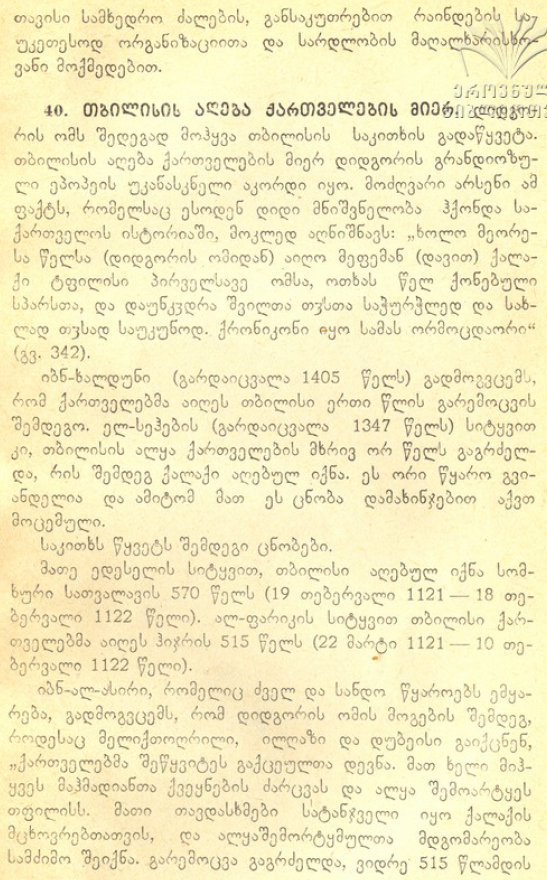 თავისი სამხედრო ძალების, განსაკუთრებით რაინდების სა-
უკეთესოდ ორგანიზაციითა და სარდლობის მაღალხარისხო-
ვანი მოქმედებით.
ეროვნული
ბიბლიოთეკა
40. თბილისის აღება ქართველების მიერ. დიდგო-
რის ომს შედეგად მოჰყვა თბილისის საკითხის გადაწყვეტა.
თბილისის აღება ქართველების მიერ დიდგორის გრანდიოზუ-
ლი ეპოპეის უკანასკნელი აკორდი იყო. მოძღვარი არსენი ამ
ფაქტს, რომელსაც ესოდენ დიდი მნიშვნელობა ჰქონდა სა-
ქართველოს ისტორიაში, მოკლედ აღნიშნავს: „ხოლო მეორე-
სა წელსა (დიდგორის ომიდან) აიღო მეფემან (დავით) ქალა-
ქი ტფილისი პირველსავე ომსა, ოთხას წელ ქონებული
სპარსთა, და დაუნკჳდრა შვილთა თჳსთა საჭურჭლედ და სახ-
ლად თჳსად საუკუნოდ. ქრონიკონი იყო სამას ორმოცდაორი“
(გვ. 342).
იბნ-ხალდუნი (გარდაიცვალა 1405 წელს) გადმოგვცემს,
რომ ქართველებმა აიღეს თბილისი ერთი წლის გარემოცვის
შემდეგო. ელ-სეჰების (გარდაიცვალა 1347 წელს) სიტყვით
კი, თბილისის ალყა ქართველების მხრივ ორ წელს გაგრძელ-
და, რის შემდეგ ქალაქი აღებულ იქნა. ეს ორი წყარო გვი-
ანდელია და ამიტომ მათ ეს ცნობა დამახინჯებით აქვთ
მოცემული.
საკითხს წყვეტს შემდეგი ცნობები.
მათე ედესელის სიტყვით, თბილისი აღებულ იქნა სომ-
ხური სათვალავის 570 წელს (19 თებერვალი 1121 — 18 თე-
ბერვალი 1122 წელი). ალ-ფარიკის სიტყვით თბილისი ქარ-
თველებმა აიღეს ჰიჯრის 515 წელს (22 მარტი 1121 — 10 თე-
ბერვალი 1122 წელი).
იბნ-ალ-ასირი, რომელიც ძველ და სანდო წყაროებს ემყა-
რება, გადმოგვცემს, რომ დიდგორის ომის მოგების შემდეგ,
როდესაც მელიქთოღრილი, ილღაზი და დუბეისი გაიქცნენ,
„ქართველებმა შეწყვიტეს გაქცეულთა დევნა. მათ ხელი მიჰ-
ყვეს მაჰმადიანთა ქვეყნების ძარცვას და ალყა შემოარტყეს
თფილისს. მათი თავდასხმები სატანჯველი იყო ქალაქის
მცხოვრებთათვის, და ალყაშემორტყმულთა მდგომარეობა
სამძიმო შეიქნა. გარემოცვა გაგრძელდა, ვიდრე 515 წლამდის